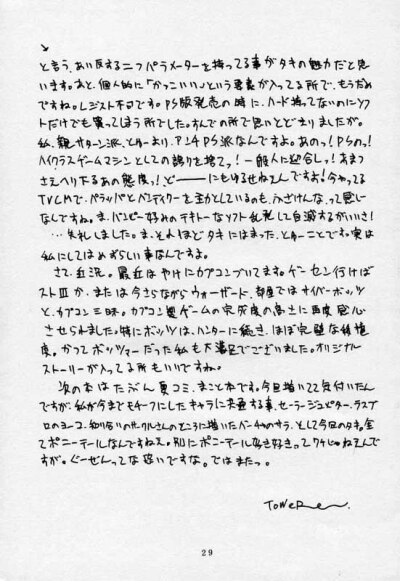 と言う、あい反する二つパラメーターを持ってる事がタキの魅力だと思
います。あと、個人的に「かっこいい」という要素が入ってる所で、もうだめ
ですね。レジスト不可です。PS版発売の時に、ハード持ってないのにソフ
トだけでも買ってしまう所でした。すんでの所で思いとどまりましたが。
私、親サターン派、とゆーより、アンチPS派なんですよ。あのっ!PSのっ!
ハイクラスゲームマシンとしての誇りを捨てっ!一般人に迎合しっ!あまつ
さえへり下るあの態度っ!どーーにもゆるせねえんですよ!今やってる
TVCMで、パラッパとパンティクーを主力としているのも、ふざけんなって感じ
なんですね。ま、パンピー好みのテキトーなソフト乱発して自滅するがいいさ!
…失礼しました。ま、それほどタキにはまった、とゆーことです。実は
私にしてはめずらしい事なんですよ。
さて、近況。最近はやけにカプコンづいてます。ゲーセン行けば
ストⅢか、または今さらながらウォーザード、部屋ではサイバーボッツ
と、カプコン三昧。カプコン製ゲームの完成度の高さに再度感心
させられました。特にボッツは、ハンターに続き、ほぼ完璧な移植
度。かつてボッツマーだった私も大満足でございました。オリジナル
ストーリーが入ってる所もいいですね。
次のおはたぶん夏コミ、まこと本です。今回描いてて気付いたん
ですが、私が今までモチーフにしたキャラに共通する事、セーラージュピター、ラスブ
ロのヨーコ、知り合いのサークルさんのところに描いたバーチャのサラ、そして今回のタキ。全
てポニーテールなんですねえ。別にポニーテール好き好きってワケじゃねえんで
すが。ぐーぜんってな恐いですな。ではまたっ。
ToWeRe
29